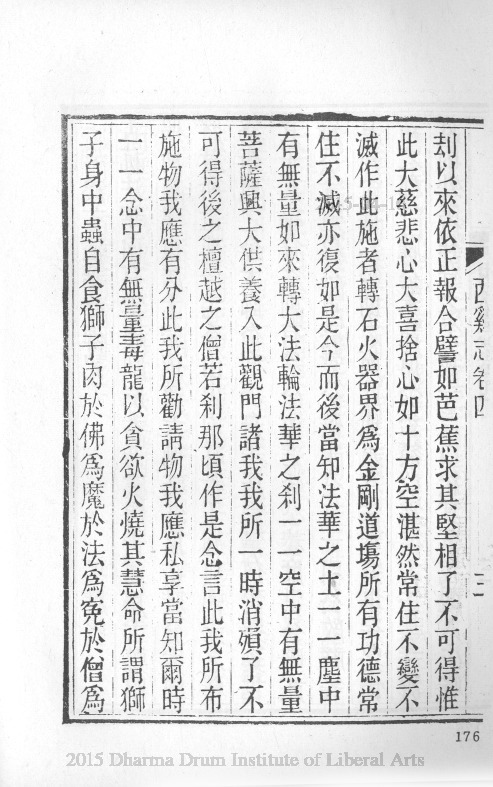 刦以來依正報合譬如芭蕉求其堅相了不可得惟
此大慈悲心大喜捨心如十方空湛然常住不變不
滅作此施者轉石火器界爲金剛道塲所有功德常
住不滅亦復如是今而後當知法華之土一一塵中
有無量如來轉大法輪法華之刹一一空中有無量
菩薩興大供養入此觀門諸我我所一時消殞了不
可得後之檀越之僧若刹那頃作是念言此我所布
施物我應有分此我所勸請物我應私享當知爾時
一一念中有無量毒龍以貪欲火燒其慧命所謂獅
子身中蟲自食獅子肉於佛爲魔於法爲寃於僧爲
西谿志卷四
三
176
2015 Dharma Drum Institute of Liberal Arts